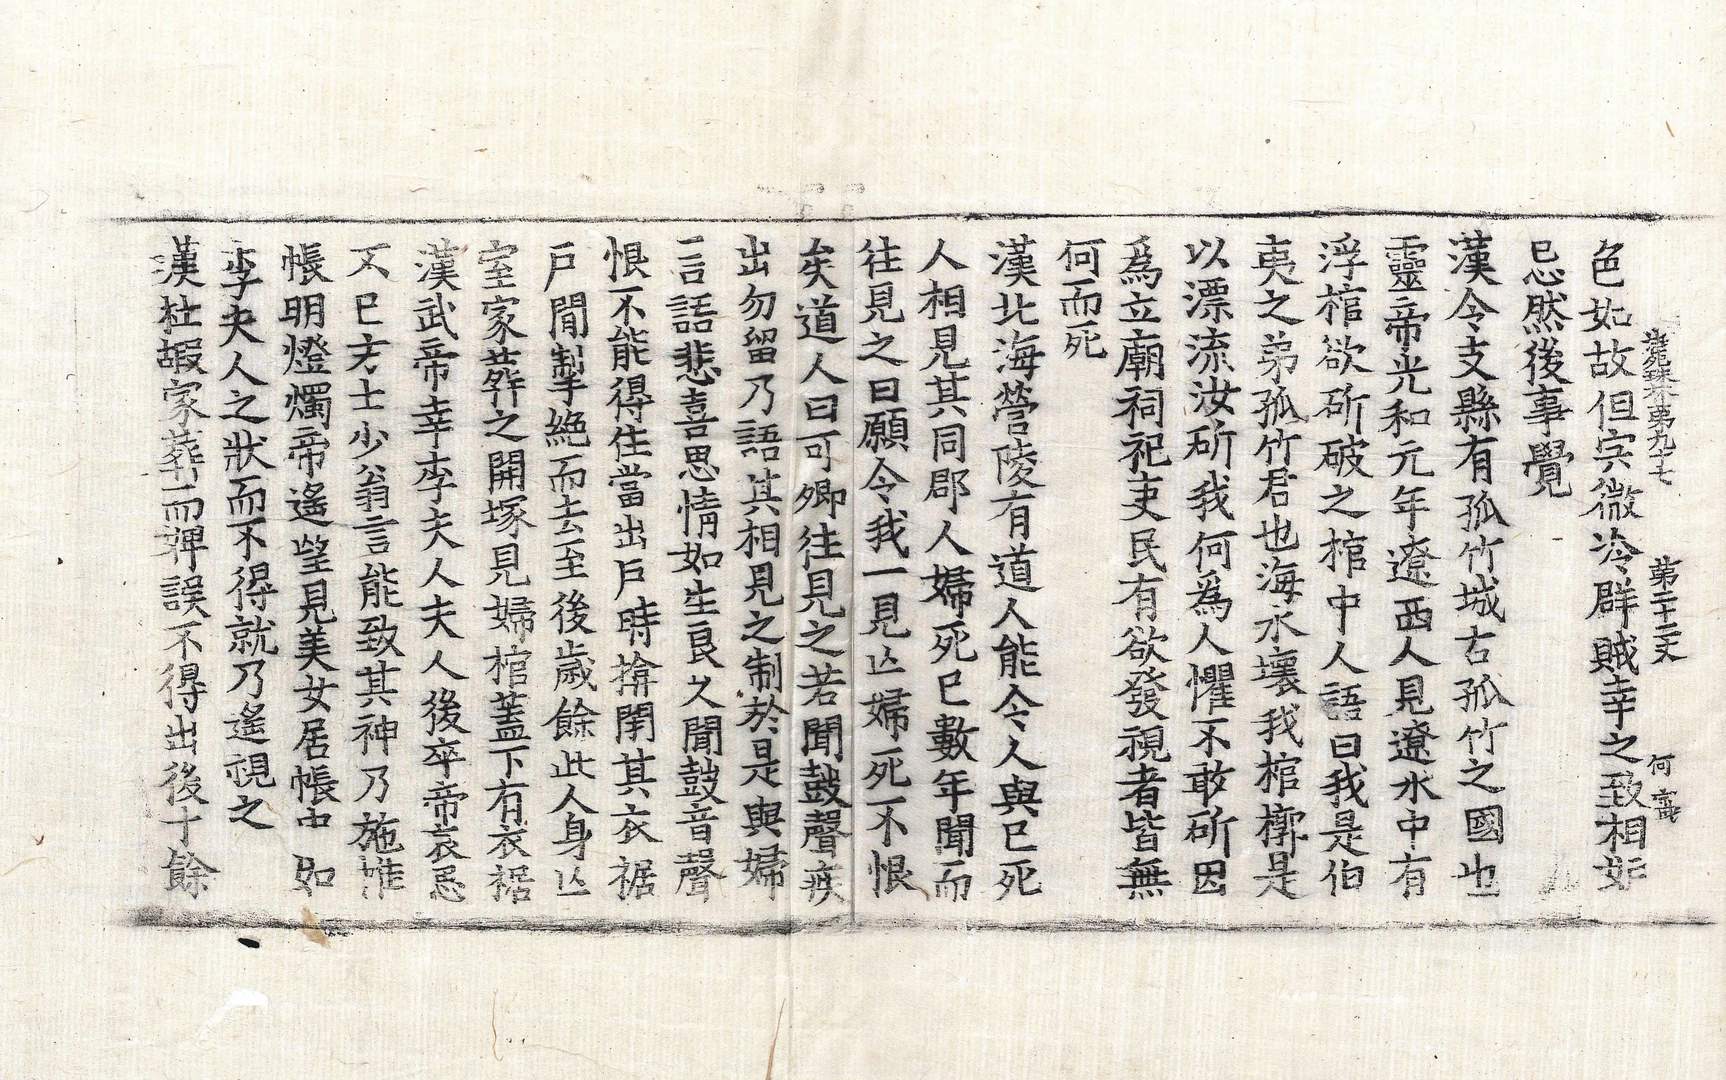 法苑珠林第九十七　第二十二丈　何甫
色如故但宍微冷群賊幸之致相妬
忌然後事覺
漢令支縣有孤竹城古孤竹之國也
靈帝光和元年遼西人見遼水中有
浮棺欲斫破之棺中人語曰我是伯
夷之弟孤竹君也海水壞我棺槨是
以漂流汝斫我何爲人懼不敢斫因
爲立廟祠祀吏民有欲發視者皆無
何而死
漢北海營陵有道人能令人與已死
人相見其同郡人婦死已數年聞而
往見之曰願令我一見亾婦死不恨
矣道人曰可卿往見之若聞鼓聲疾
出勿留乃語其相見之制於是與婦
言語悲喜恩情如生良久聞鼓音聲
恨不能得住當出戶時揜閇其衣裾
戶閒掣絶而去至後歲餘此人身亾
室家葬之開塚見婦棺蓋下有衣裾
漢武帝幸李夫人夫人後卒帝哀思
不已方士少翁言能致其神乃施帷
帳明燈燭帝遙望見美女居帳中如
李夫人之狀而不得就乃遙視之
漢杜嘏家葬而婢誤不得出後十餘